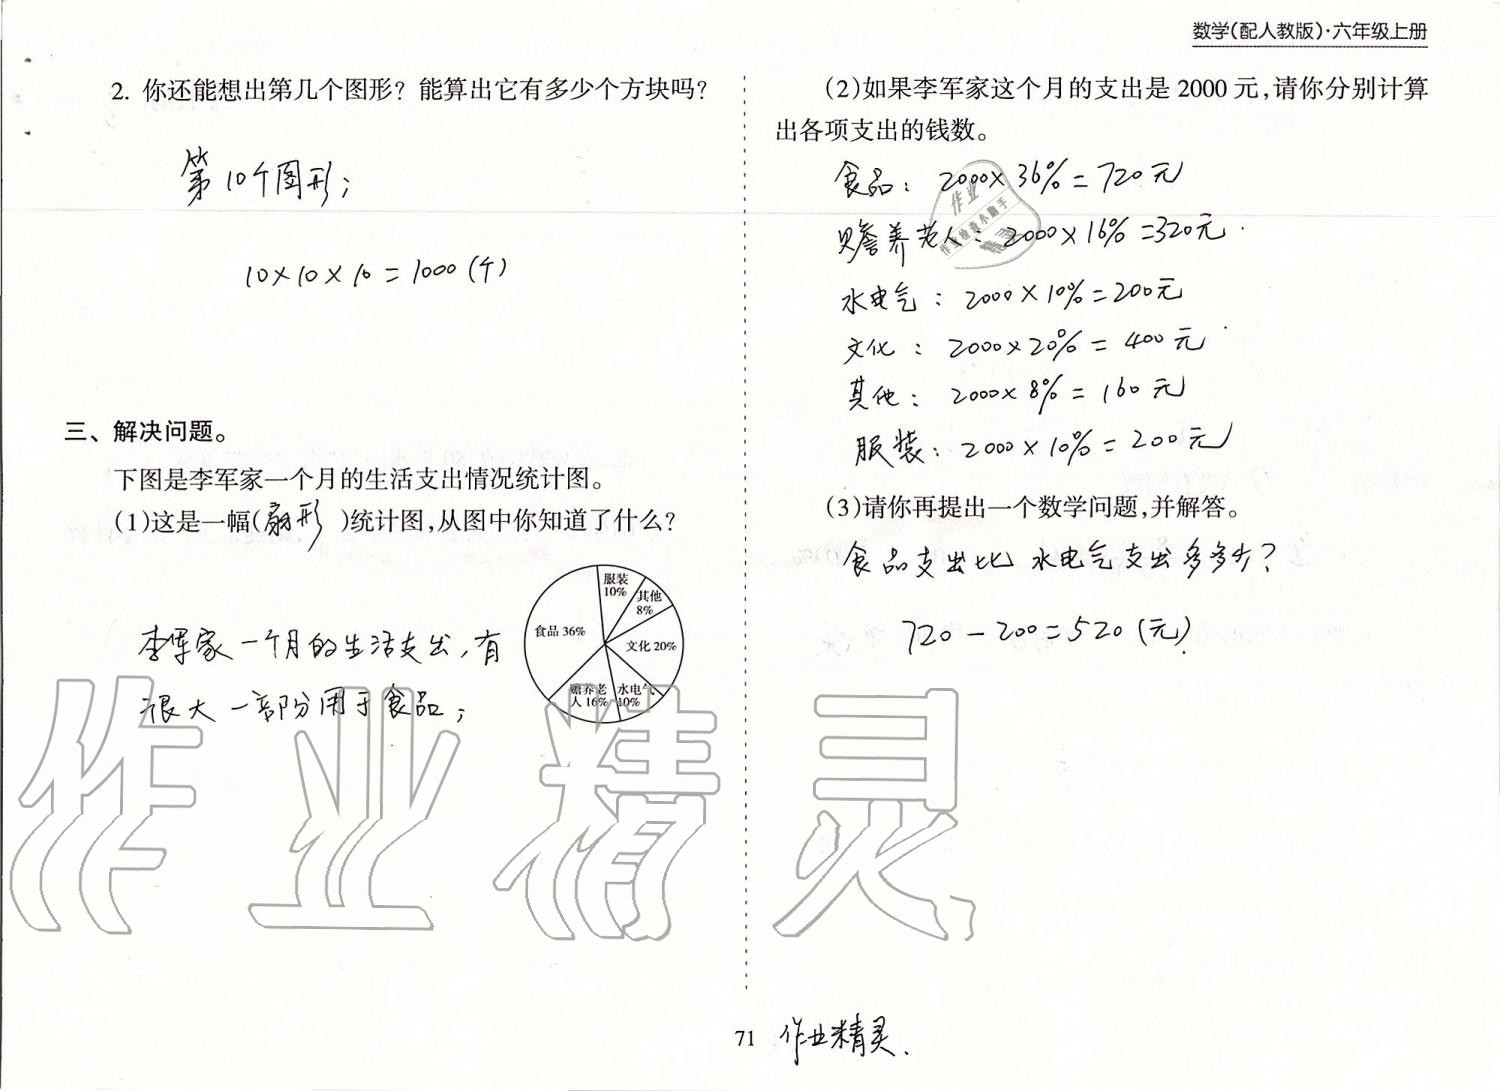 数学(配人教版)·六年级上册
2. 你还能想出第几个图形？能算出它有多少个方块吗？
第10个图形；
10×10×10=1000(个)
三、解决问题。
下图是李军家一个月的生活支出情况统计图。
(1)这是一幅(扇形 )统计图，从图中你知道了什么？
服装
10%
其他
8%
食品 36%
文化 20%
赡养老
人 16%
水电气
10%
李军家一个月的生活支出，有
很大一部分用于食品；
(2)如果李军家这个月的支出是 2000 元，请你分别计算
出各项支出的钱数。
食品：2000×36%=720元
赡养老人：2000×16%=320元
水电气：2000×10%=200元
文化：2000×20%=400元
其他：2000×8%=160元
服装：2000×10%=200元
(3)请你再提出一个数学问题，并解答。
食品支出比水电气支出多多少？
720-200=520(元)
作业
作业检查小助手
作业精灵
71
作业精灵